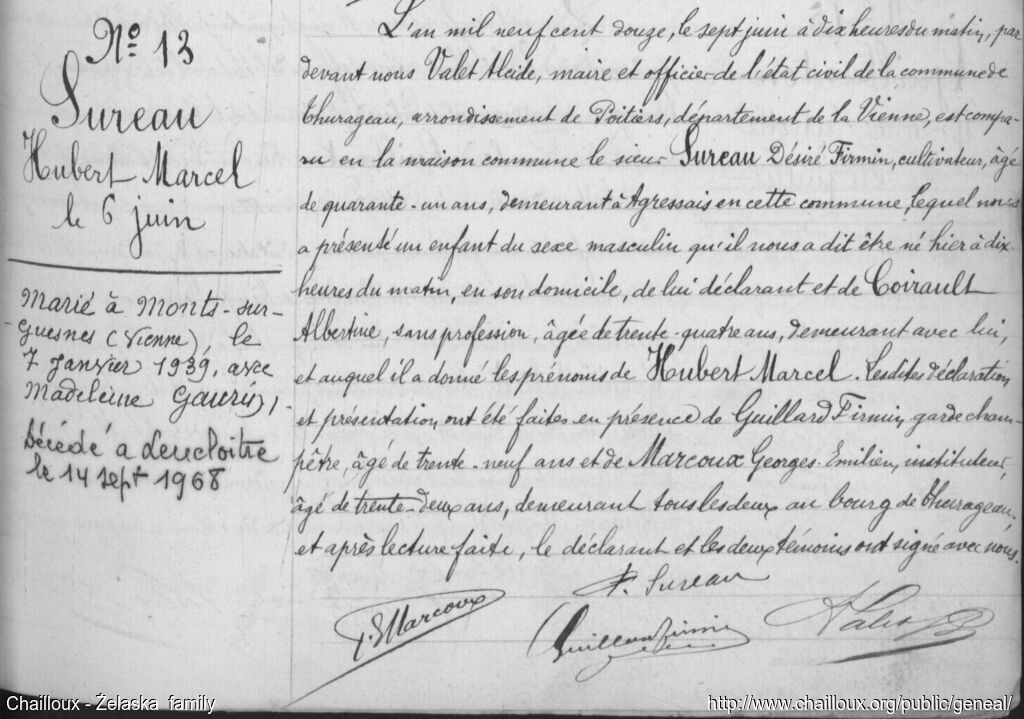 N° 13
Sureau
Hubert Marcel
le 6 juin
Marié à Monts-sur-
Guesnes (Vienne), le
7 Janvier 1939, avec
Madeleine
Décédé à Lencloitre
le 14 sept 1968
L'an mil neuf cent douze, le sept juin à dix heures du matin, par
devant nous Valet Alcide, maire et officier de l'état civil de la commune de
Thurageau, arrondissement de Poitiers, département de la Vienne, est compa-
ru en la maison commune le sieur Sureau Désiré Firmin, cultivateur, âgé
de quarante-un ans, demeurant à Agressais en cette commune, lequel nous
a présenté un enfant du sexe masculin qu'il nous a dit être né hier à dix
heures du matin, en son domicile, de lui déclarant et de Coirault
Albertine, sans profession, âgée de trente-quatre ans, demeurant avec lui,
et auquel il a donné les prénoms de Hubert Marcel. Les dites déclaration
et présentation, ont été faites en présence de Guillard Firmin, garde cham-
pêtre, âgé de trente-neuf ans et de Marcoux Georges-Emilien, instituteur,
âgé de trente-deux ans, demeurant tous les deux au bourg de Thurageau,
et après lecture faite, le déclarant et les deux témoins ont signé avec nous.
F. Sureau
GEMarcoux
Guillard Firmin
AValet
Chailloux - Żelaska family
http://www.chailloux.org/public/geneal/